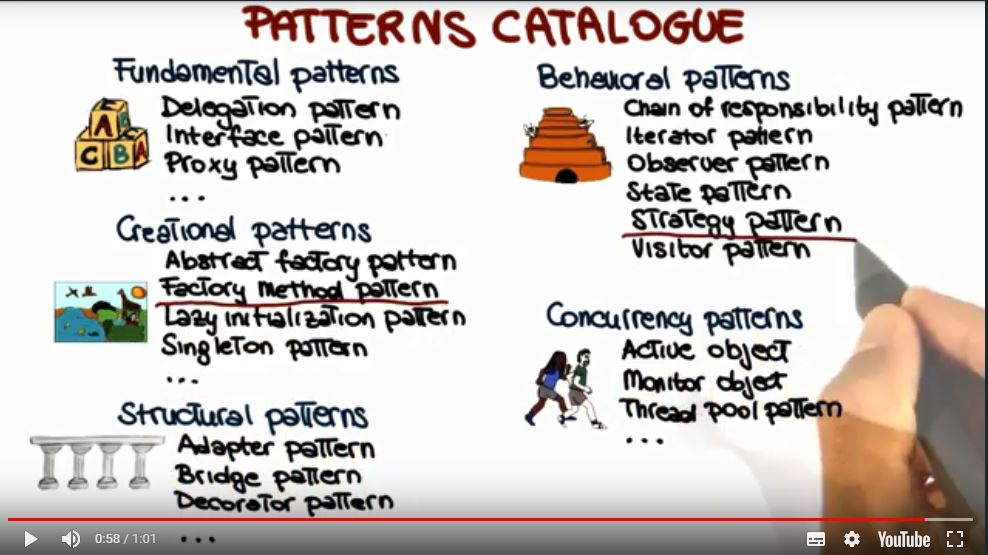 PATTERNS CATALOGUE
Fundamental patterns
Delegation pattern
Interface pattern
Proxy pattern
...
Creational patterns
Abstract factory pattern
Factory Method pattern
Lazy initialization pattern
Singleton pattern
...
Structural patterns
Adapter pattern
Bridge pattern
Decorator pattern
...
Behavioral patterns
Chain of responsibility pattern
Iterator pattern
Observer pattern
State pattern
Strategy pattern
Visitor pattern
Concurrency patterns
Active object
Monitor object
Thread pool pattern
...
A
C B A
0:58 / 1:01
YouTube